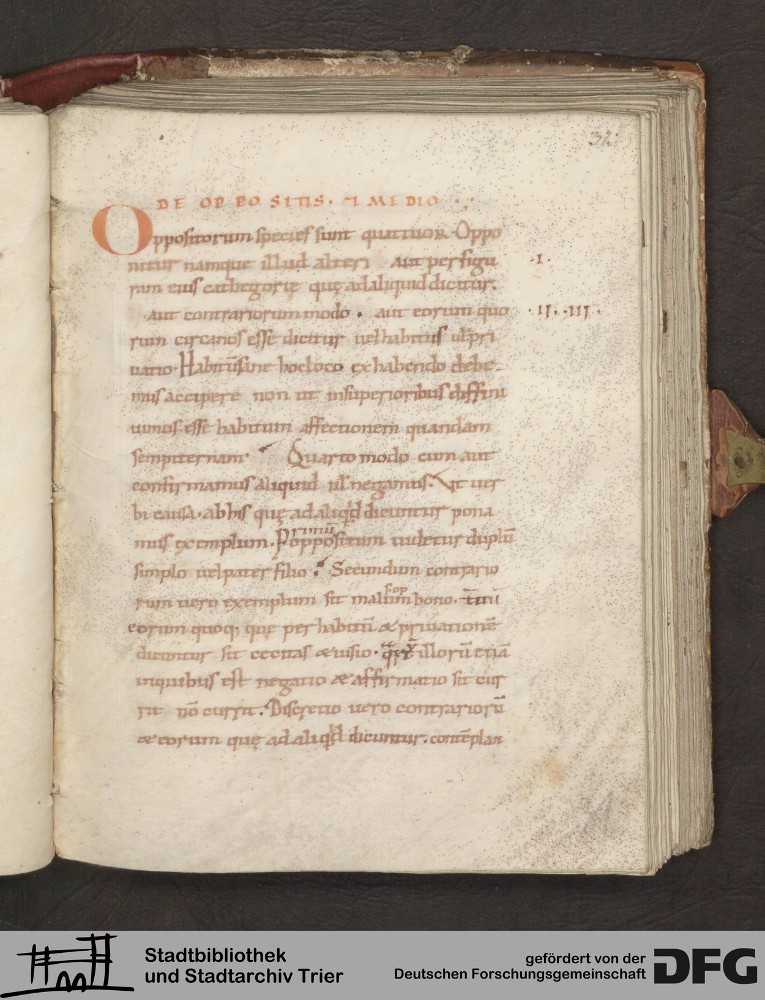 32
DE OPPOSITIS · ⁊ MEDIO
Oppositorum species sunt quattuor. Oppo
nitur namque illud alteri aut per figu · I ·
ram eius cathegorię quę ad aliquid dicitur.
aut contrariorum modo · aut eorum quo · II · · III ·
rum circa nos esse dicitur vel habitus ul pri
uatio. Habitū sane hoc loco ex habendo debe
mus accipere non ut in superioribus diffini
uimus esse habitum affectionem quandam
sempiternam Quarto modo cum aut
confirmamus aliquid ul negamus. Ut uer
bi causa. ab his quę ad aliqd dicuntur pona
mus exemplum. Oppositum uidetur duplū
simplo vel pater filio Secundum contrario
rum uero exemplum sit malum bono.
eorum quoq; quę per habitū & priuationē
dicuntur sit cecitas & uisio. illorū etiā
in quibus est negatio & affirmatio sit cur
rit nō currit. Discretio uero contrariorū
& eorum quę ad aliqd dicuntur. contēplan
Stadtbibliothek
und Stadtarchiv Trier
gefördert von der
Deutschen Forschungsgemeinschaft
DFG